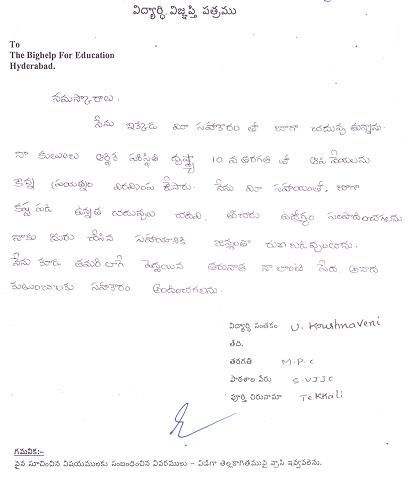 విద్యార్ధి విజ్ఞప్తి పత్రము
To
The Bighelp For Education
Hyderabad.
నమస్కారాలు.
నేను ఇక్కడ మీ సహకారం తో బాగా చదువు తున్నాను.
నా కుటుంబ ఆర్థిక పరిస్థితి దృష్ట్యా 10 వ తరగతి తో
నేను మీ సహాయంతో, బాగా
కష్ట పడి ఉన్నత చదువులు చదివి, ఉద్యోగం సంపాదించగలను.
నాకు మీరు చేసిన సహాయానికి జన్మంతా రుణ పడివుంటాను.
నేను కూడా తమరి లాగే పెద్దయిన తరువాత నా లాంటి పేద
కుటుంబాలకు సహకారం అందించగలను.
విద్యార్ధి సంతకం U. Koushnaveni
తేది.
తరగతి M.P.C
పాఠశాల పేరు S.VJJC
పూర్తి చిరునామా Tekkali
గమనిక:-
పైన సూచించిన విషయములకు సంబంధించిన వివరములు – విడిగా తెల్లకాగితముపై వ్రాసి ఇవ్వవలెను.